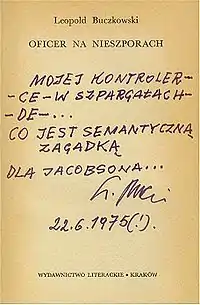 Leopold Buczkowski
OFICER NA NIESZPORACH
MOJEJ KONTROLER-
-CE-W SZPARGAŁACH-
-DE-...
CO JEST SEMANTYCZNĄ
ZAGADKĄ
DLA JACOBSONA...
22.6.1975(!).
WYDAWNICTWO LITERACKIE • KRAKÓW